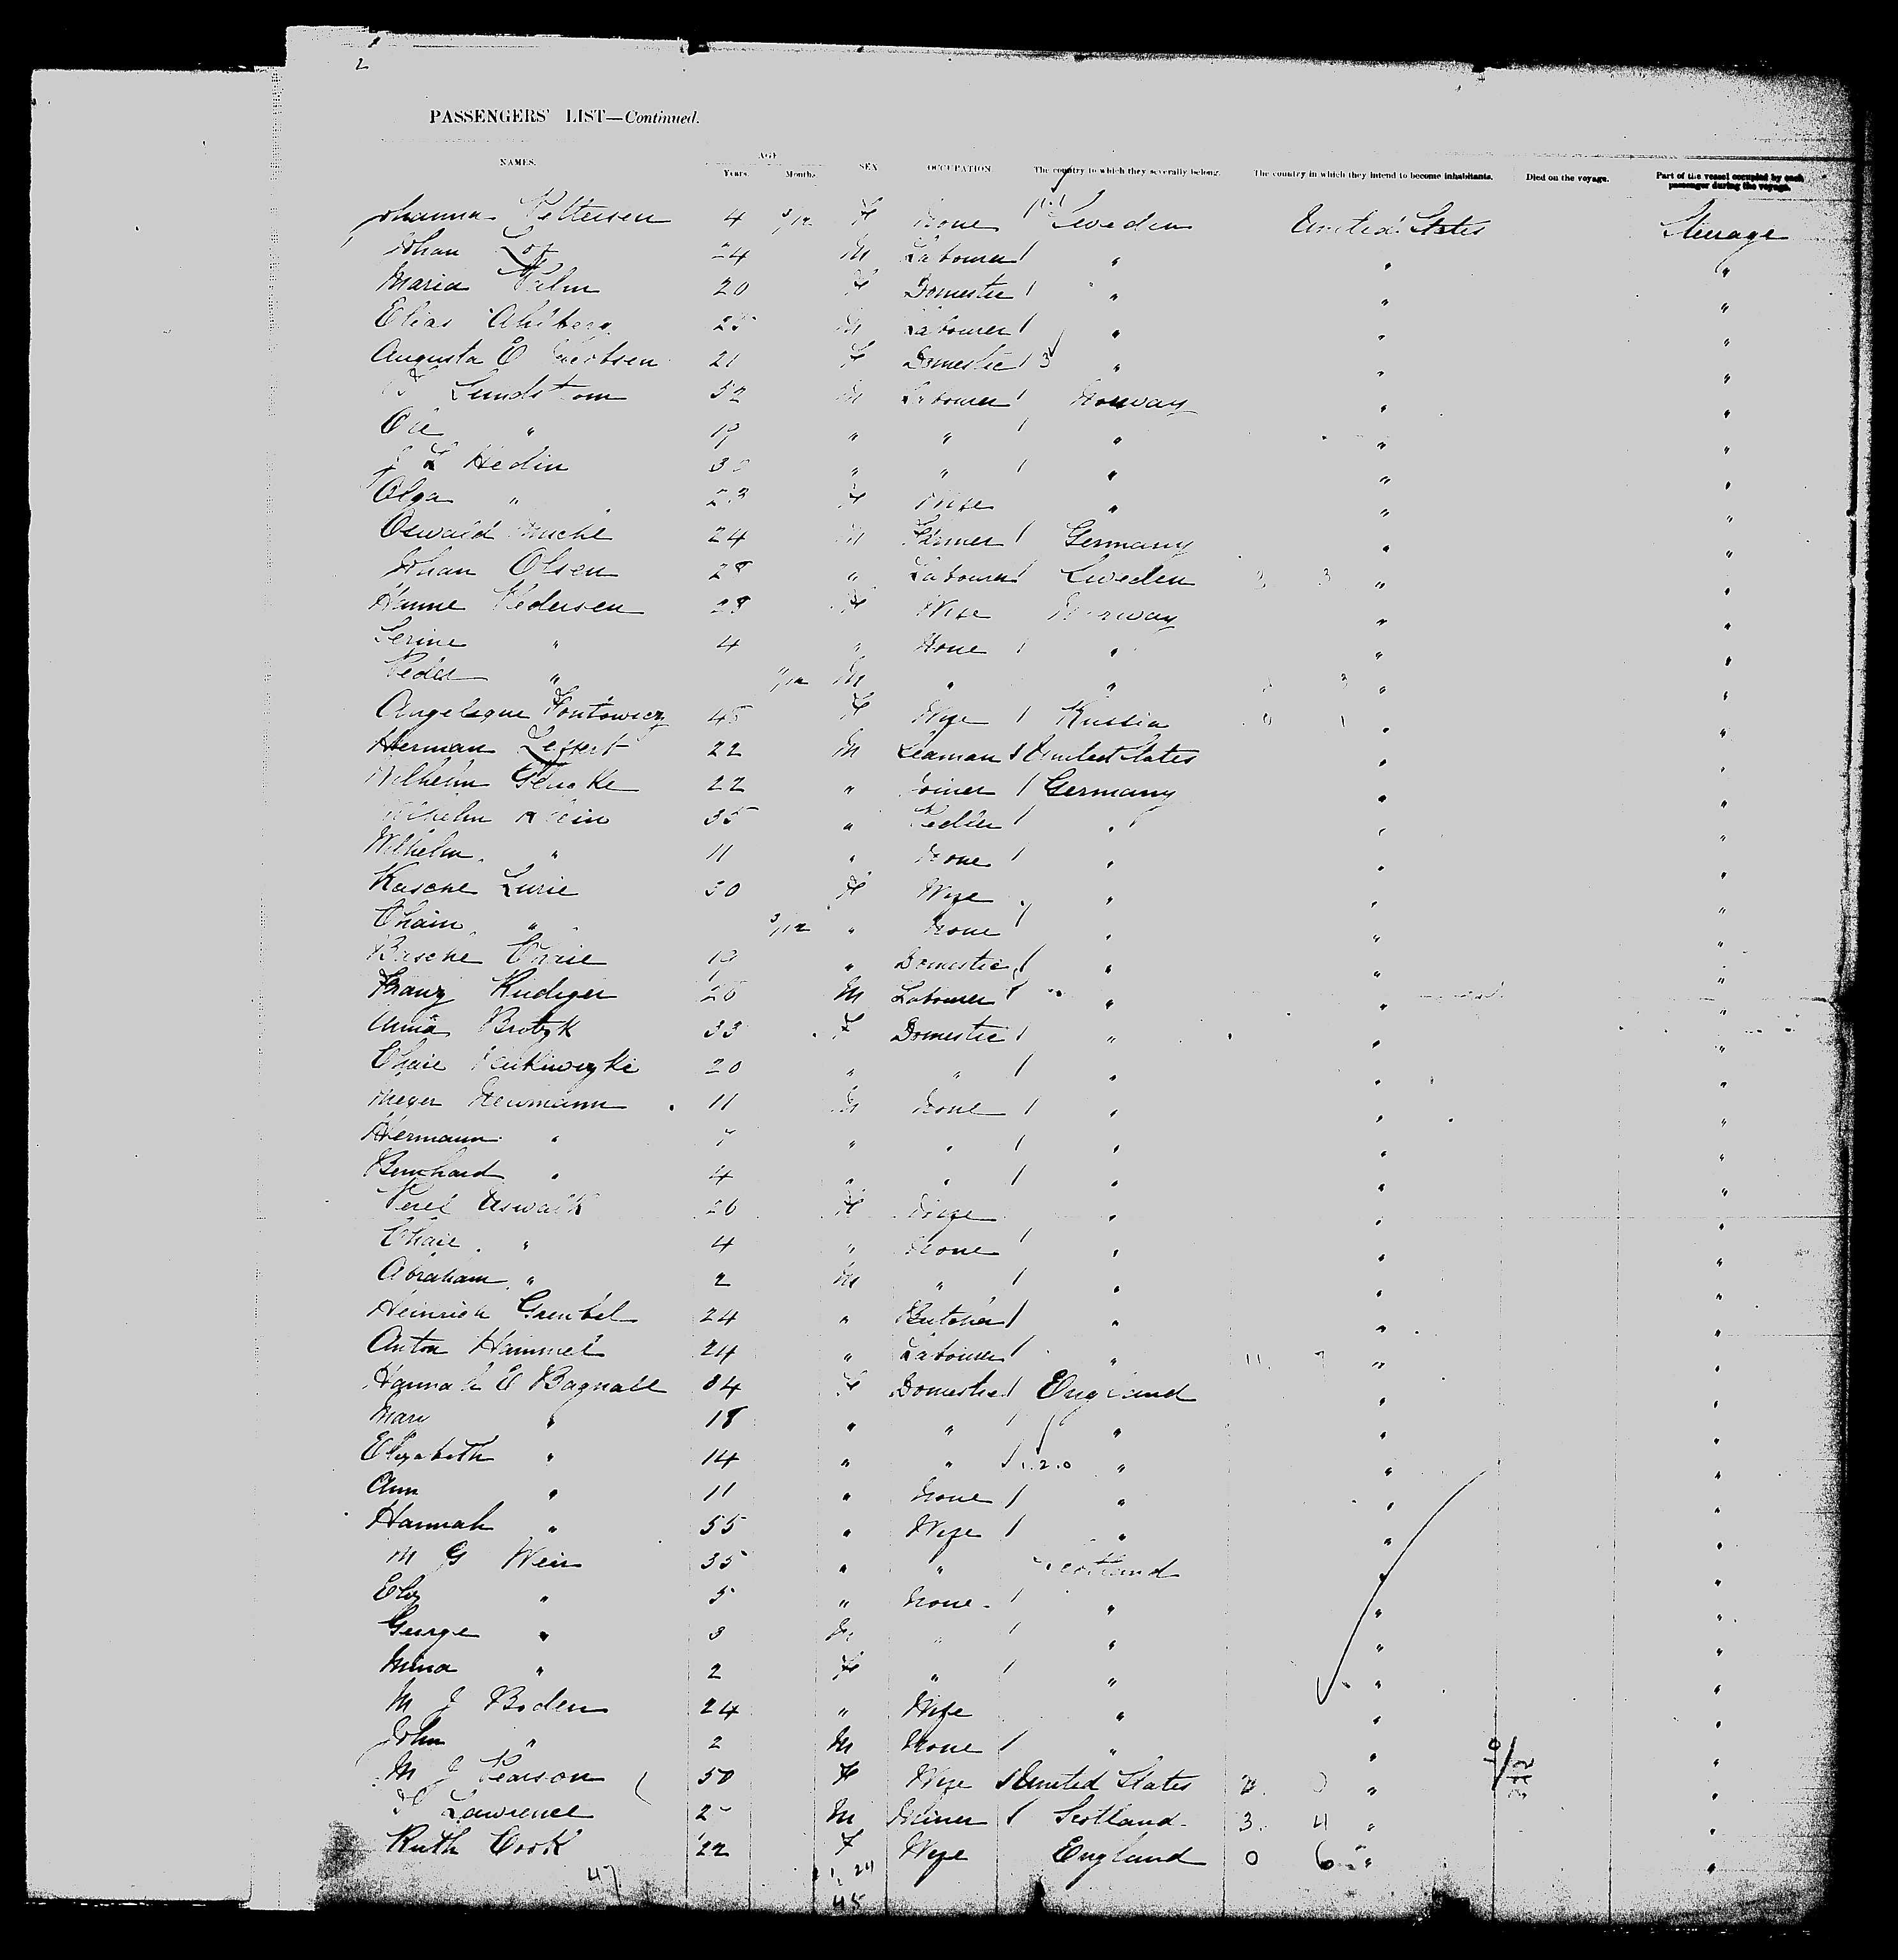 2
PASSENGERS' LIST—Continued.
NAMES. AGE Years. Months. SEX OCCUPATION The country to which they severally belong. The country in which they intend to become inhabitants. Died on the voyage. Part of the vessel occupied by each passenger during the voyage.
Johanna Pettersen 4 3/12 F None 1 Sweden United States Steerage
Johan 24 M Labourer 1 " " "
Maria Palm 20 F Domestic 1 " " "
Elias Ahlberg 25 M Labourer 1 " " "
Augusta E Jacobsen 21 F Domestic 1 3 " " "
Lundstrom 52 M Labourer 1 Norway " "
Ole " 19 " " 1 " " "
J L Hedin 30 " " 1 " " "
Olga " 23 F Wife " " "
Oswald 24 M Farmer 1 Germany " "
Johan Olsen 28 " Labourer 1 Sweden 3 " "
Hanne Pedersen 28 F Wife Norway " "
Serine " 4 " None 1 " " "
Peder " 11/12 M " " " "
Angelique 45 F Wife 1 Russia 0 1 " "
Herman Leffert 22 M Seaman 1 United States " "
Wilhelm 22 " Joiner 1 Germany " "
Wilhelm Klein 35 " Pedler 1 " " "
Wilhelm " 11 " None 1 " " "
Kasche Lurie 30 F Wife " " "
Chain " 3/12 " None 1 " " "
Basche Chaie 19 " Domestic 1 " " "
Franz Rudiger 26 M Labourer 1 " " "
Anna Brotzk 33 F Domestic 1 " " "
Chaie 20 " " 1 " " "
Meyer Neumann 11 M None 1 " " "
Hermann " 7 " " 1 " " "
Bernhard " 4 " " 1 " " "
Perel 26 F Wife " " "
Chaie " 4 " None 1 " " "
Abraham " 2 M " 1 " " "
Heinrich Grunbel 24 " Butcher 1 " " "
Anton Hammel 24 " Labourer 1 " 11 " "
Hannah E Bagnall 34 F Domestic 1 England " "
Mary " 18 " " 1 " " "
Elizabeth " 14 " " 1 1.2.0 " " "
Ann " 11 " None 1 " " "
Hannah " 55 " Wife 1 " " "
M G Weir 35 " " Scotland " "
Eliz " 5 " None 1 " " "
George " 3 M " 1 " " "
Mina " 2 F " 1 " " "
M J Boden 24 " Wife " " "
John " 2 M None 1 " " "
M J Pearson 50 F Wife 1 United States 2 0 " "
Lawrence M Miner 1 Scotland 3 4 " "
Ruth Cook 22 F Wife England 0 6 " "
47 21 24
45